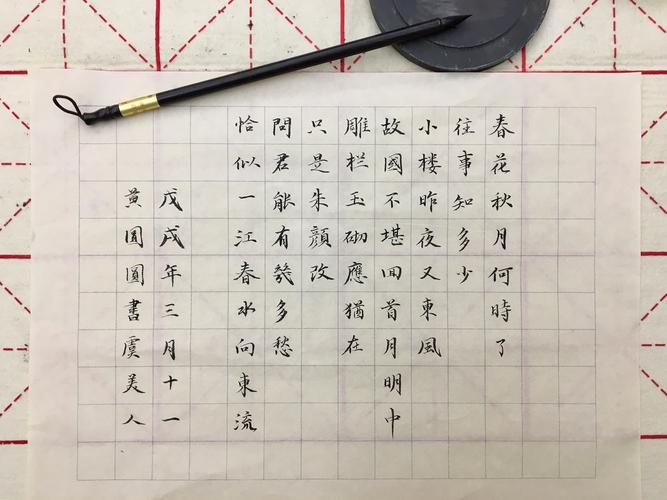 春花秋月何時了
往事知多少
小楼昨夜又東風
故國不堪回首月明中
雕栏玉砌應猶在
只是朱顔改
問君能有幾多愁
恰似一江春水向東流
戊戌年三月十一
黄圆圓書虞美人